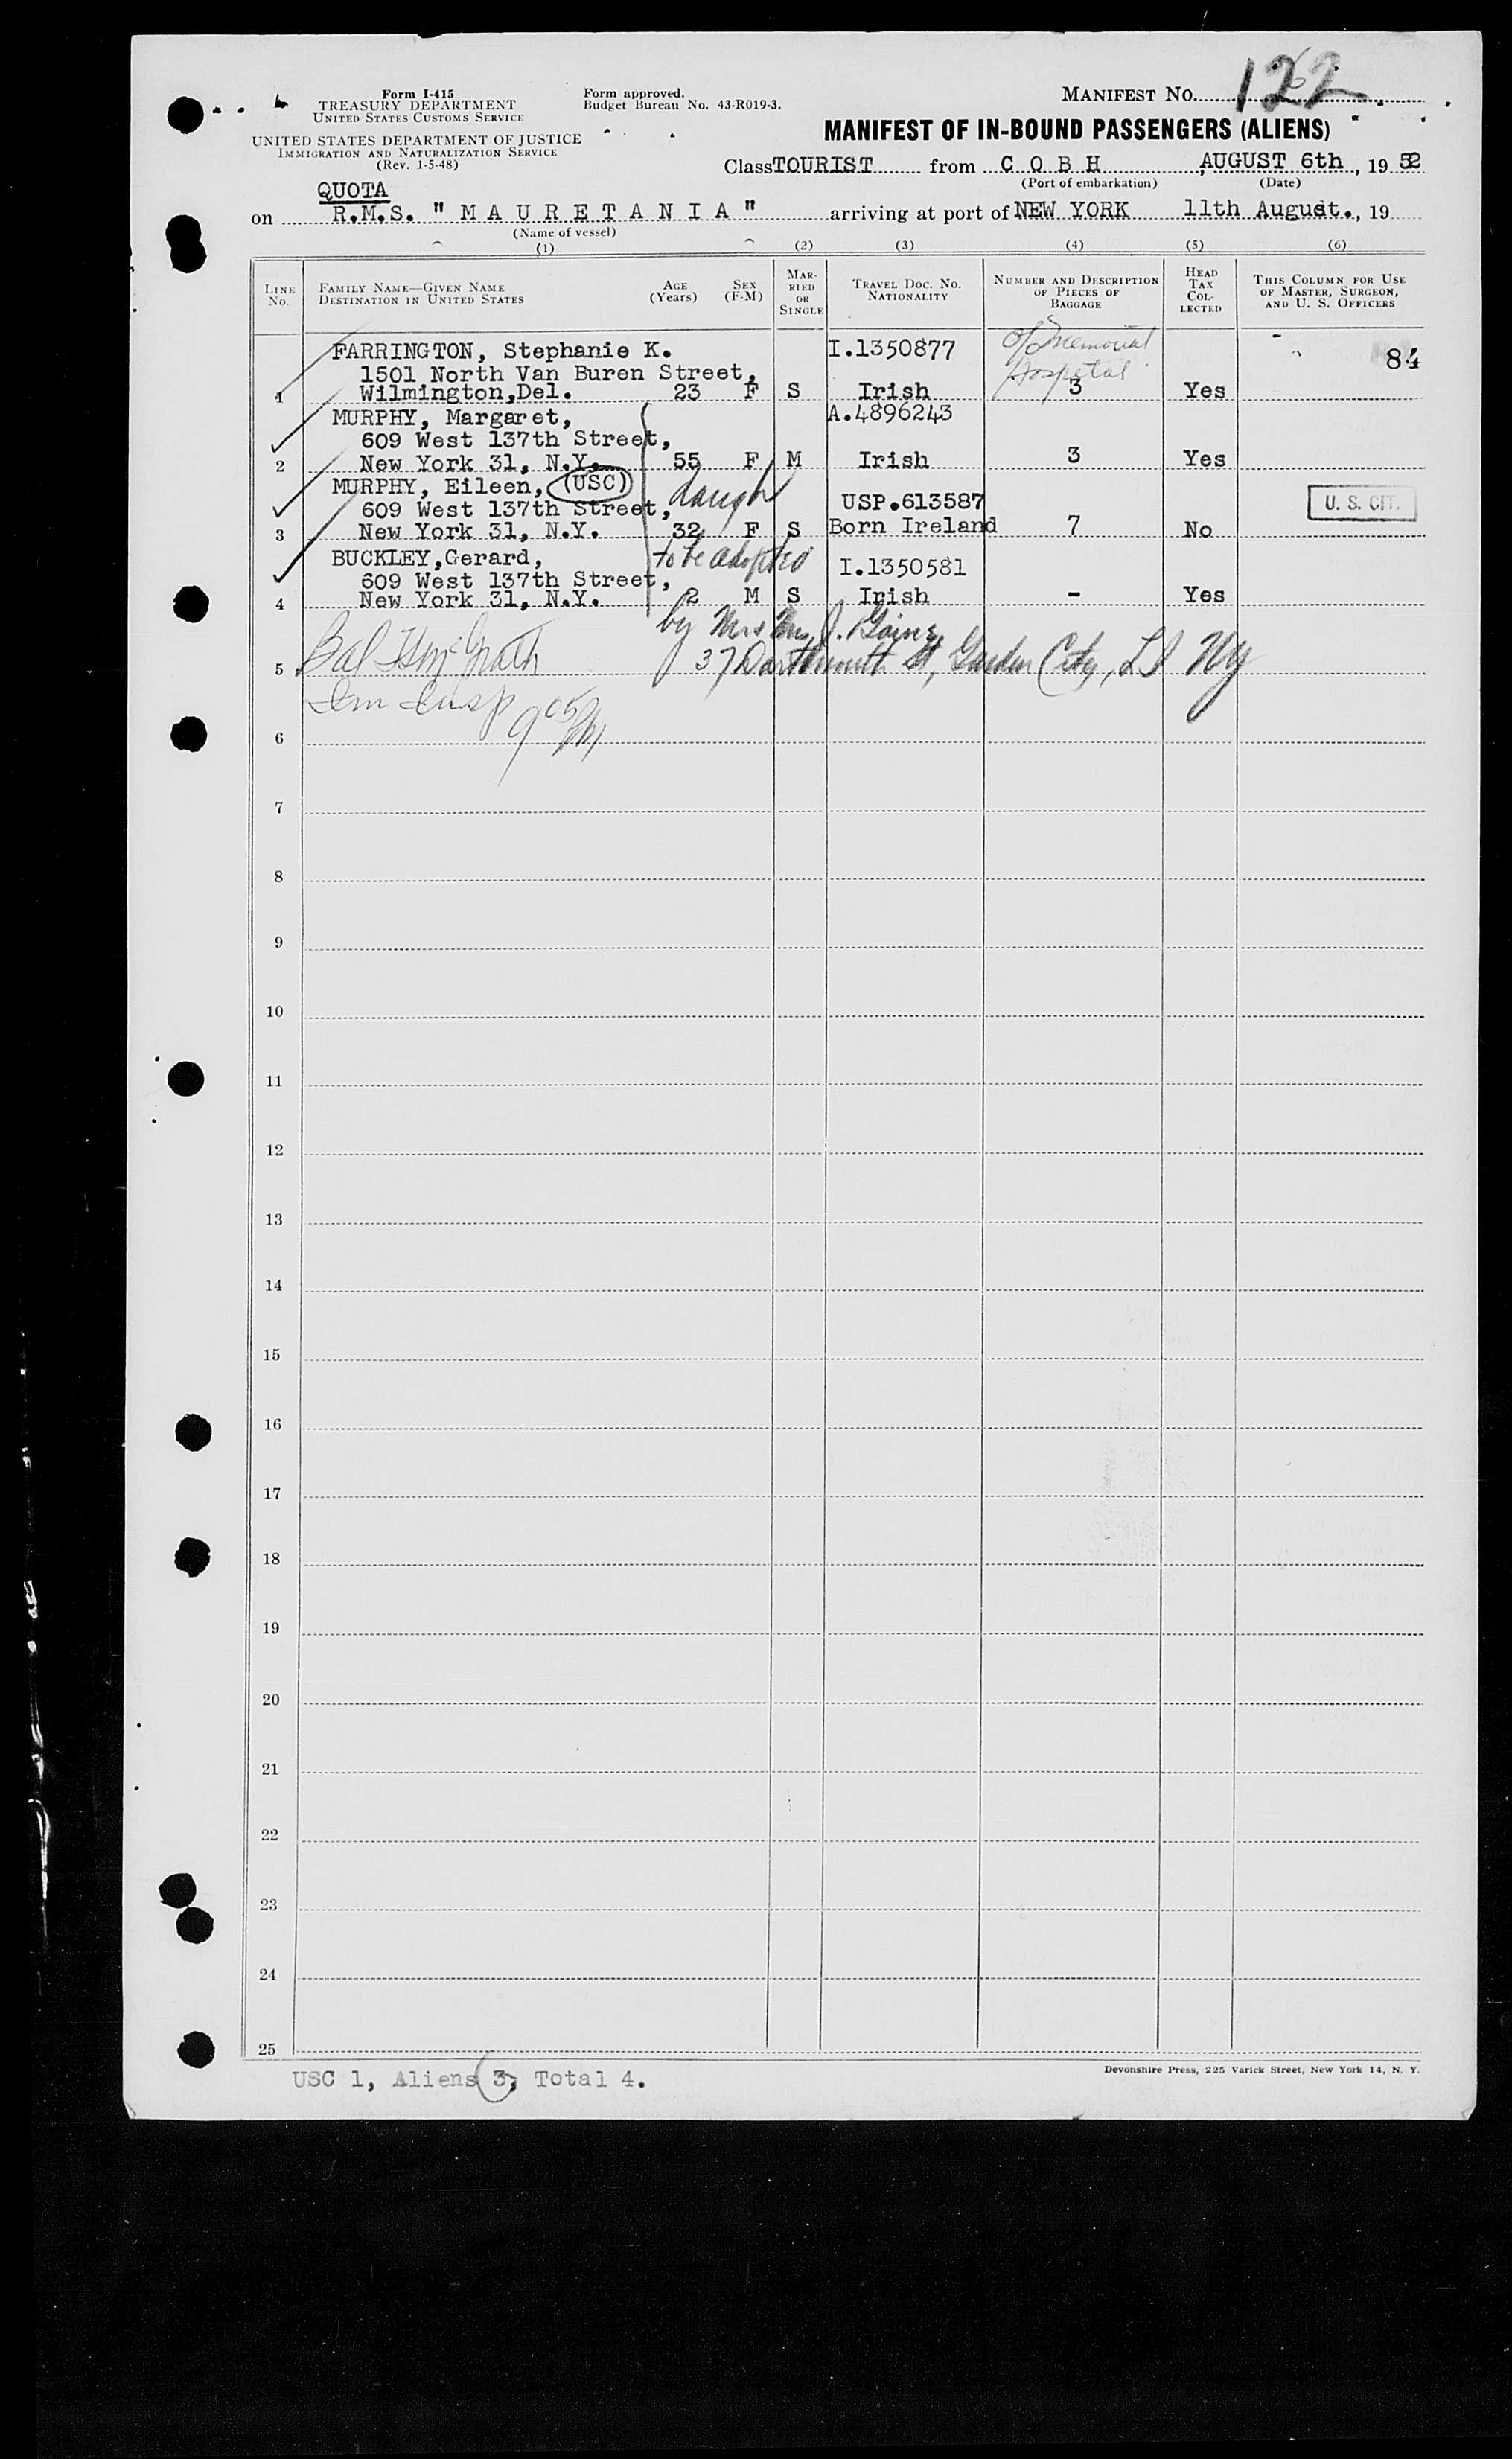 Form I-415
TREASURY DEPARTMENT
UNITED STATES CUSTOMS SERVICE
UNITED STATES DEPARTMENT OF JUSTICE
IMMIGRATION AND NATURALIZATION SERVICE
(Rev. 1-5-48)
Form approved.
Budget Bureau No. 43-R019-3.
MANIFEST NO. 122
MANIFEST OF IN-BOUND PASSENGERS (ALIENS)
Class TOURIST from C O B H, AUGUST 6th, 1952
(Port of embarkation) (Date)
QUOTA
on R.M.S. "M A U R E T A N I A" arriving at port of NEW YORK 11th August., 19
(Name of vessel)
(1) (2) (3) (4) (5) (6)
LINE NO. FAMILY NAME—GIVEN NAME DESTINATION IN UNITED STATES AGE (Years) SEX (F-M) MARRIED OR SINGLE TRAVEL DOC. NO. NATIONALITY NUMBER AND DESCRIPTION OF PIECES OF BAGGAGE HEAD TAX COLLECTED THIS COLUMN FOR USE OF MASTER, SURGEON, AND U. S. OFFICERS
FARRINGTON, Stephanie K. I.1350877 Memorial 84
1501 North Van Buren Street, Hospital
1 Wilmington,Del. 23 F S Irish 3 Yes
MURPHY, Margaret, A.4896243
609 West 137th Street,
2 New York 31, N.Y. 55 F M Irish 3 Yes
MURPHY, Eileen, (USC) daugh USP.613587 U. S. CIT.
609 West 137th Street,
3 New York 31, N.Y. 32 F S Born Ireland 7 No
BUCKLEY,Gerard, to be adopted I.1350581
609 West 137th Street,
4 New York 31, N.Y. 2 M S Irish - Yes
by Mrs J.
5 37 Dartmouth St, Garden City, L I NY
Imm Insp 9 05
6
7
8
9
10
11
12
13
14
15
16
17
18
19
20
21
22
23
24
25
USC 1, Aliens 3, Total 4.
Devonshire Press, 225 Varick Street, New York 14, N. Y.